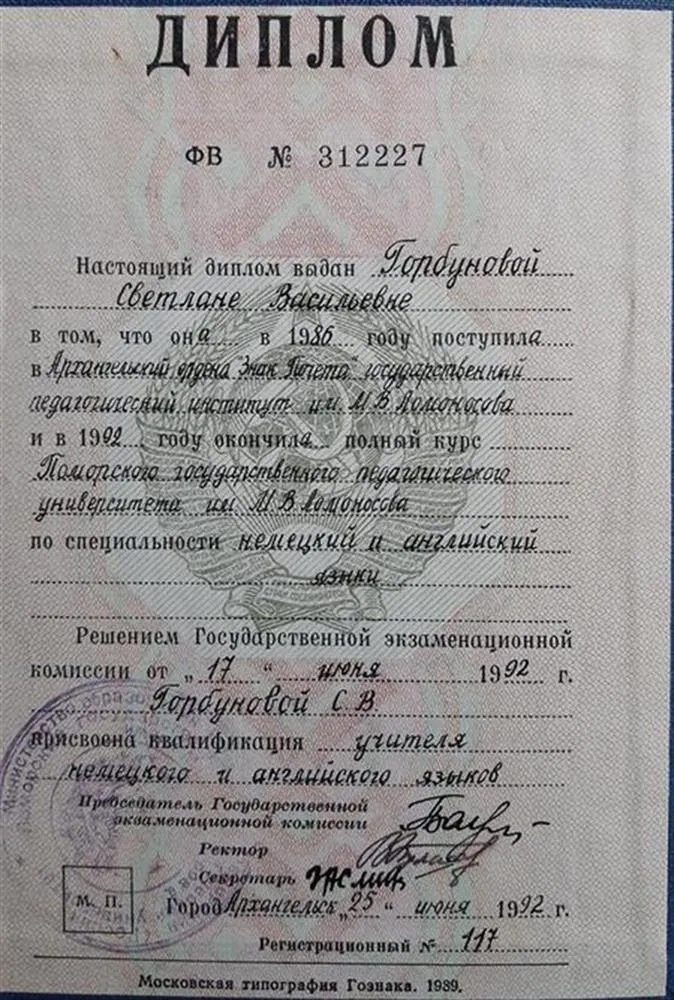 ДИПЛОМ
ФВ № 312227
Настоящий диплом выдан Горбуновой
Светлане Васильевне
в том, что она в 1986 году поступила
в Архангельский ордена "Знак Почета" государственный
педагогический институт им М В Ломоносова
и в 1992 году окончила полный курс
Поморского государственного педагогического
университета им М В Ломоносова
по специальности немецкий и английский
языки
Решением Государственной экзаменационной
комиссии от „17“ июня 1992 г.
Горбуновой С В
присвоена квалификация учителя
немецкого и английского языков
Председатель Государственной
экзаменационной комиссии
Ректор
Секретарь
М. П.
Город Архангельск „25“ июня 1992 г.
Регистрационный № 117
Московская типография Гознака. 1989.